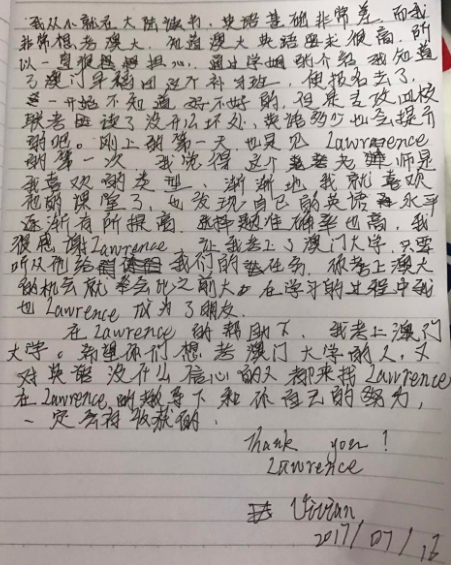 我从小就在大陆读书，英语基础非常差，而我
非常想考澳大，知道澳大英语要求很高，所
以一直很担心，通过学姐的介绍我知道
了澳门早稻田这个补习班，便报名去了，
一开始不知道好不好的，但是去攻四校
联考应该了没什么坏处，英语多少也会提升
的吧。刚上的第一天也只见Lawrence
的第一次，我觉得这个老师是
我喜欢的类型，渐渐地我就喜欢
他的课堂了，也发现自己的英语水平
逐渐有所提高，选择题准确率也高，我
很感谢Lawrence，让我考上了澳门大学，只要
听从他给我们的任务，你考上澳大
的机会就牵会比之前大，在学习的过程中我
也Lawrence成为了朋友。
在Lawrence的帮助下，我考上澳门
大学。希望你们想考澳门大学的人，又
对英语没什么信心的人都来找Lawrence
在Lawrence的教导下和你自己的努力，
一定会有收获的。
Thank you!
Lawrence
Vivian
2017/07/13